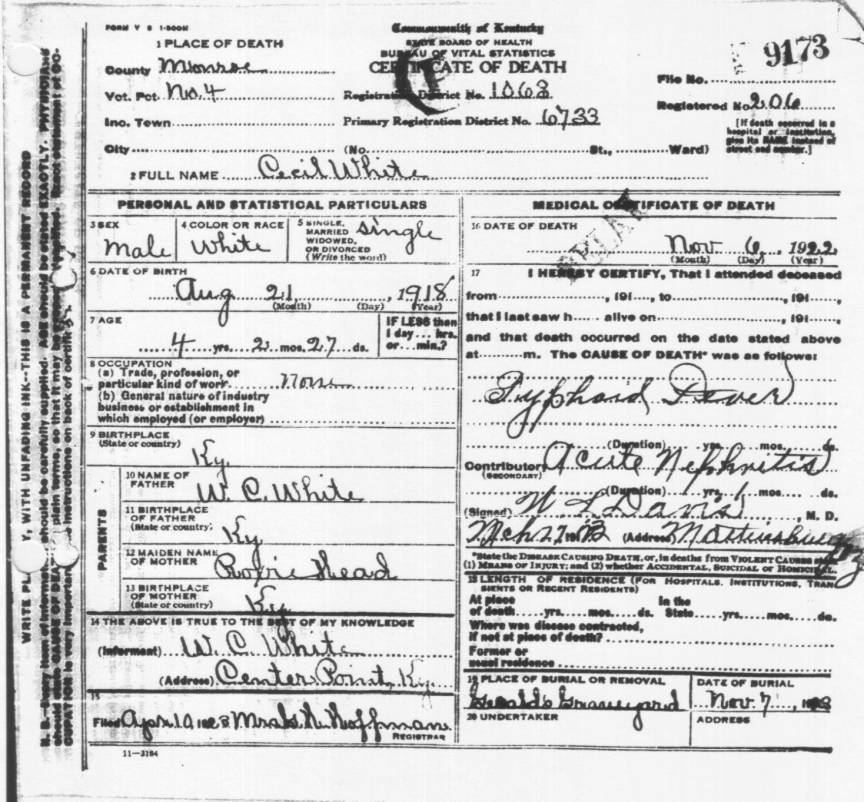 FORM V S 1-500M
Commonwealth of Kentucky
STATE BOARD OF HEALTH
BUREAU OF VITAL STATISTICS
CERTIFICATE OF DEATH
1 PLACE OF DEATH
County Monroe
Vot. Pct. No. 4
Inc. Town
City (No. St., Ward)
Registration District No. 1068
Primary Registration District No. 6733
9173
File No.
Registered No. 206
[If death occurred in a
hospital or institution,
give its NAME instead of
street and number.]
2 FULL NAME Cecil White
PERSONAL AND STATISTICAL PARTICULARS
3 SEX
male
4 COLOR OR RACE
White
5 SINGLE,
MARRIED
WIDOWED,
OR DIVORCED
(Write the word)
single
6 DATE OF BIRTH
Aug 21, 1918
(Month) (Day) (Year)
7 AGE
4 yrs. 2 mos. 27 ds.
IF LESS than
1 day... hrs.
or... min.?
8 OCCUPATION
(a) Trade, profession, or
particular kind of work None
(b) General nature of industry
business or establishment in
which employed (or employer)
9 BIRTHPLACE
(State or country)
Ky.
PARENTS
10 NAME OF
FATHER
W. C. White
11 BIRTHPLACE
OF FATHER
(State or country)
Ky
12 MAIDEN NAME
OF MOTHER
Head
13 BIRTHPLACE
OF MOTHER
(State or country)
Ky.
14 THE ABOVE IS TRUE TO THE BEST OF MY KNOWLEDGE
(Informant) W. C. White
(Address) Center Point, Ky.
15
Filed Apr 10 1923 Mrs Hoffman
REGISTRAR
11-3184
MEDICAL CERTIFICATE OF DEATH
DELAY
16 DATE OF DEATH
Nov 6, 1922
(Month) (Day) (Year)
17 I HEREBY CERTIFY, That I attended deceased
from , 191 , to , 191 ,
that I last saw h alive on , 191 ,
and that death occurred on the date stated above
at m. The CAUSE OF DEATH* was as follows:
Typhoid Fever
(Duration) yrs. mos. ds.
Contributory Acute Nephritis
(SECONDARY)
(Duration) yrs. mos. ds.
(Signed) Davis, M. D.
(Address)
*State the DISEASE CAUSING DEATH, or, in deaths from VIOLENT CAUSES
(1) MEANS OF INJURY; and (2) whether ACCIDENTAL, SUICIDAL or HOMICIDAL.
18 LENGTH OF RESIDENCE (FOR HOSPITALS, INSTITUTIONS, TRAN
SIENTS OR RECENT RESIDENTS)
At place In the
of death yrs. mos. ds. State yrs. mos. ds.
Where was disease contracted,
if not at place of death?
Former or
usual residence
19 PLACE OF BURIAL OR REMOVAL
Graveyard
DATE OF BURIAL
Nov. 7
20 UNDERTAKER
ADDRESS